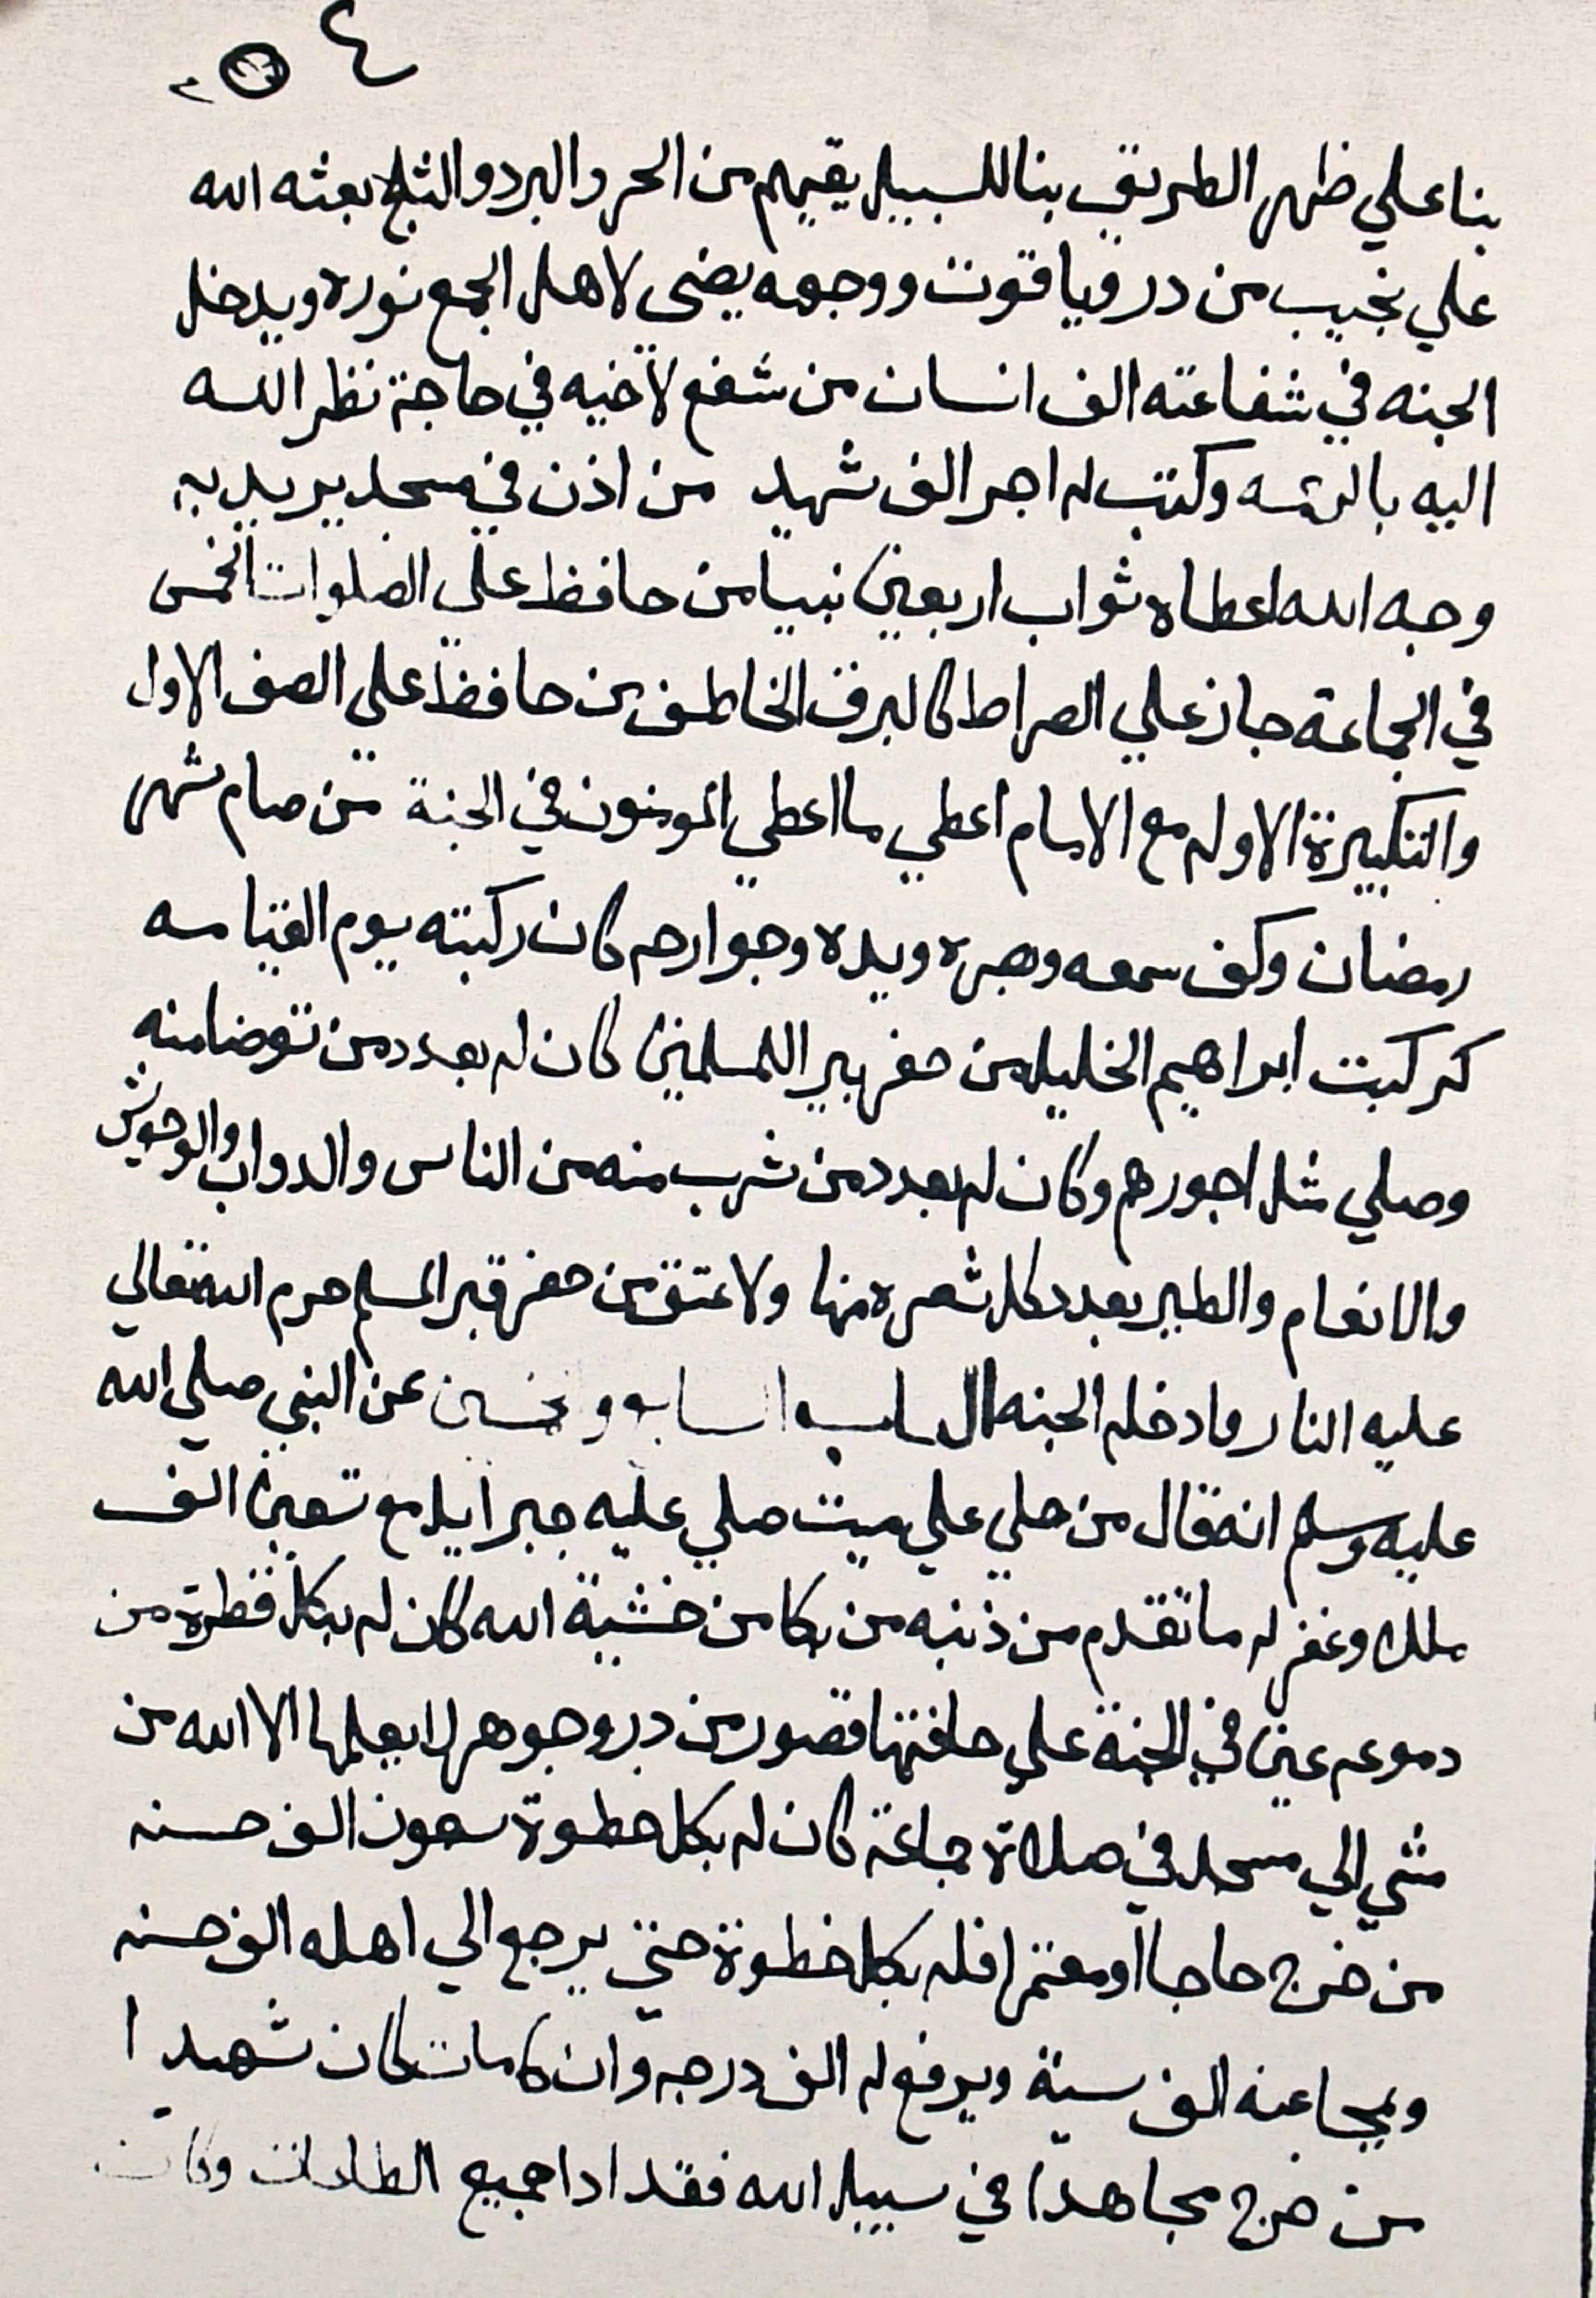 ٤
بنا علي ظهر الطريق بنا للسبيل يقيهم من الحر والبرد والثلج بعثه الله
علي نجيب من در وياقوت ووجهه يضى لاهل الجمع نوره ويدخل
الجنه في شفاعته الف انسان من شفع لاخيه في حاجة نظر الله
اليه بالرحمه وكتب له اجر الف شهيد من اذن في مسجد يريد به
وجه الله اعطاه ثواب اربعين نبيا من حافظ على الصلوات الخمس
في الجماعة جاز علي الصراط كالبرق الخاطف من حافظ على الصف الاول
والتكبيرة الاوله مع الامام اعطي ما اعطي المومنون في الجنة من صام شهر
رمضان وكف سمعه وبصره ويده وجوارحه كان ركبته يوم القيامه
كركبت ابراهيم الخليل من حفر بير اللمسلمين كان له بعدد من توضا منه
وصلي مثل اجورهم وكان له بعدد من شرب منه من الناس والدواب والوحوش
والانعام والطير بعدد كل شعره منها ولا عتق من حفر قبر المسلم حرم الله تعالي
عليه النار وادخله الجنه عن النبي صلي الله
عليه وسلم انه قال من صلي علي ميت صلي عليه جبرايل مع تسعين الف
ملك وغفر له ما تقدم من ذنبه من بكا من خشية الله كان له بكل قطرة من
دموعه عين في الجنة علي حافتها قصور من در وجوهر لا يعلمها الا الله من
مشي الي مسجد في صلاة جماعة كان له بكل خطوة سبعون الف حسنه
من خرج حاجا او معتمرا فله بكل خطوة حتي يرجع الي اهله الف حسنه
ويمحا عنه الف سية ويرفع له الف درجه وان كامات كان شهيدا
من خرج مجاهدا في سبيل الله فقد ادا جميع الطاعات وكان